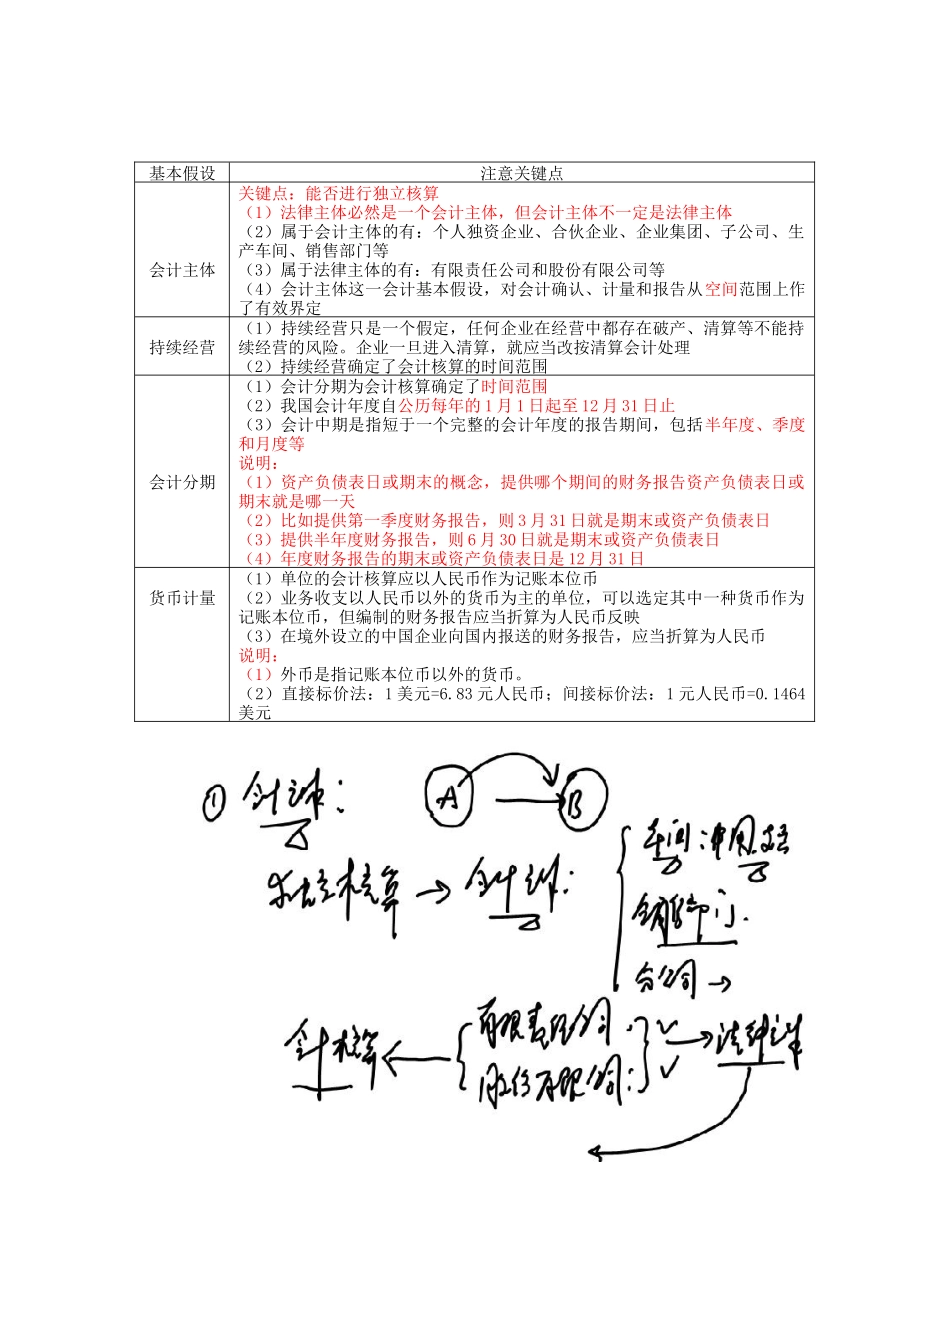 基本假设 注意关键点
关键点：能否进行独立核算
（1）法律主体必然是一个会计主体，但会计主体不一定是法律主体
（2）属于会计主体的有：个人独资企业、合伙企业、企业集团、子公司、生
产车间、销售部门等
会计主体
（3）属于法律主体的有：有限责任公司和股份有限公司等
（4）会计主体这一会计基本假设，对会计确认、计量和报告从空间范围上作
了有效界定
（1）持续经营只是一个假定，任何企业在经营中都存在破产、清算等不能持
持续经营
续经营的风险。企业一旦进入清算，就应当改按清算会计处理
（2）持续经营确定了会计核算的时间范围
（1）会计分期为会计核算确定了时间范围
（2）我国会计年度自公历每年的 1 月 1 日起至 12 月 31 日止
（3）会计中期是指短于一个完整的会计年度的报告期间，包括半年度、季度
和月度等
说明：
会计分期
（1）资产负债表日或期末的概念，提供哪个期间的财务报告资产负债表日或
期末就是哪一天
（2）比如提供第一季度财务报告，则 3 月 31 日就是期末或资产负债表日
（3）提供半年度财务报告，则 6 月 30 日就是期末或资产负债表日
（4）年度财务报告的期末或资产负债表日是 12 月 31 日
（1）单位的会计核算应以人民币作为记账本位币
货币计量
（2）业务收支以人民币以外的货币为主的单位，可以选定其中一种货币作为
记账本位币，但编制的财务报告应当折算为人民币反映
（3）在境外设立的中国企业向国内报送的财务报告，应当折算为人民币
说明：
（1）外币是指记账本位币以外的货币。
（2）直接标价法：1 美元=6.83 元人民币；间接标价法：1 元人民币=0.1464
美元
① 会计主体： A → B
车间：
独立核算 → 会计主体：
销售部门.
分公司 →
有限责任公司. ✓
会计核算 ← → 法律主体
股份有限公司： ✓